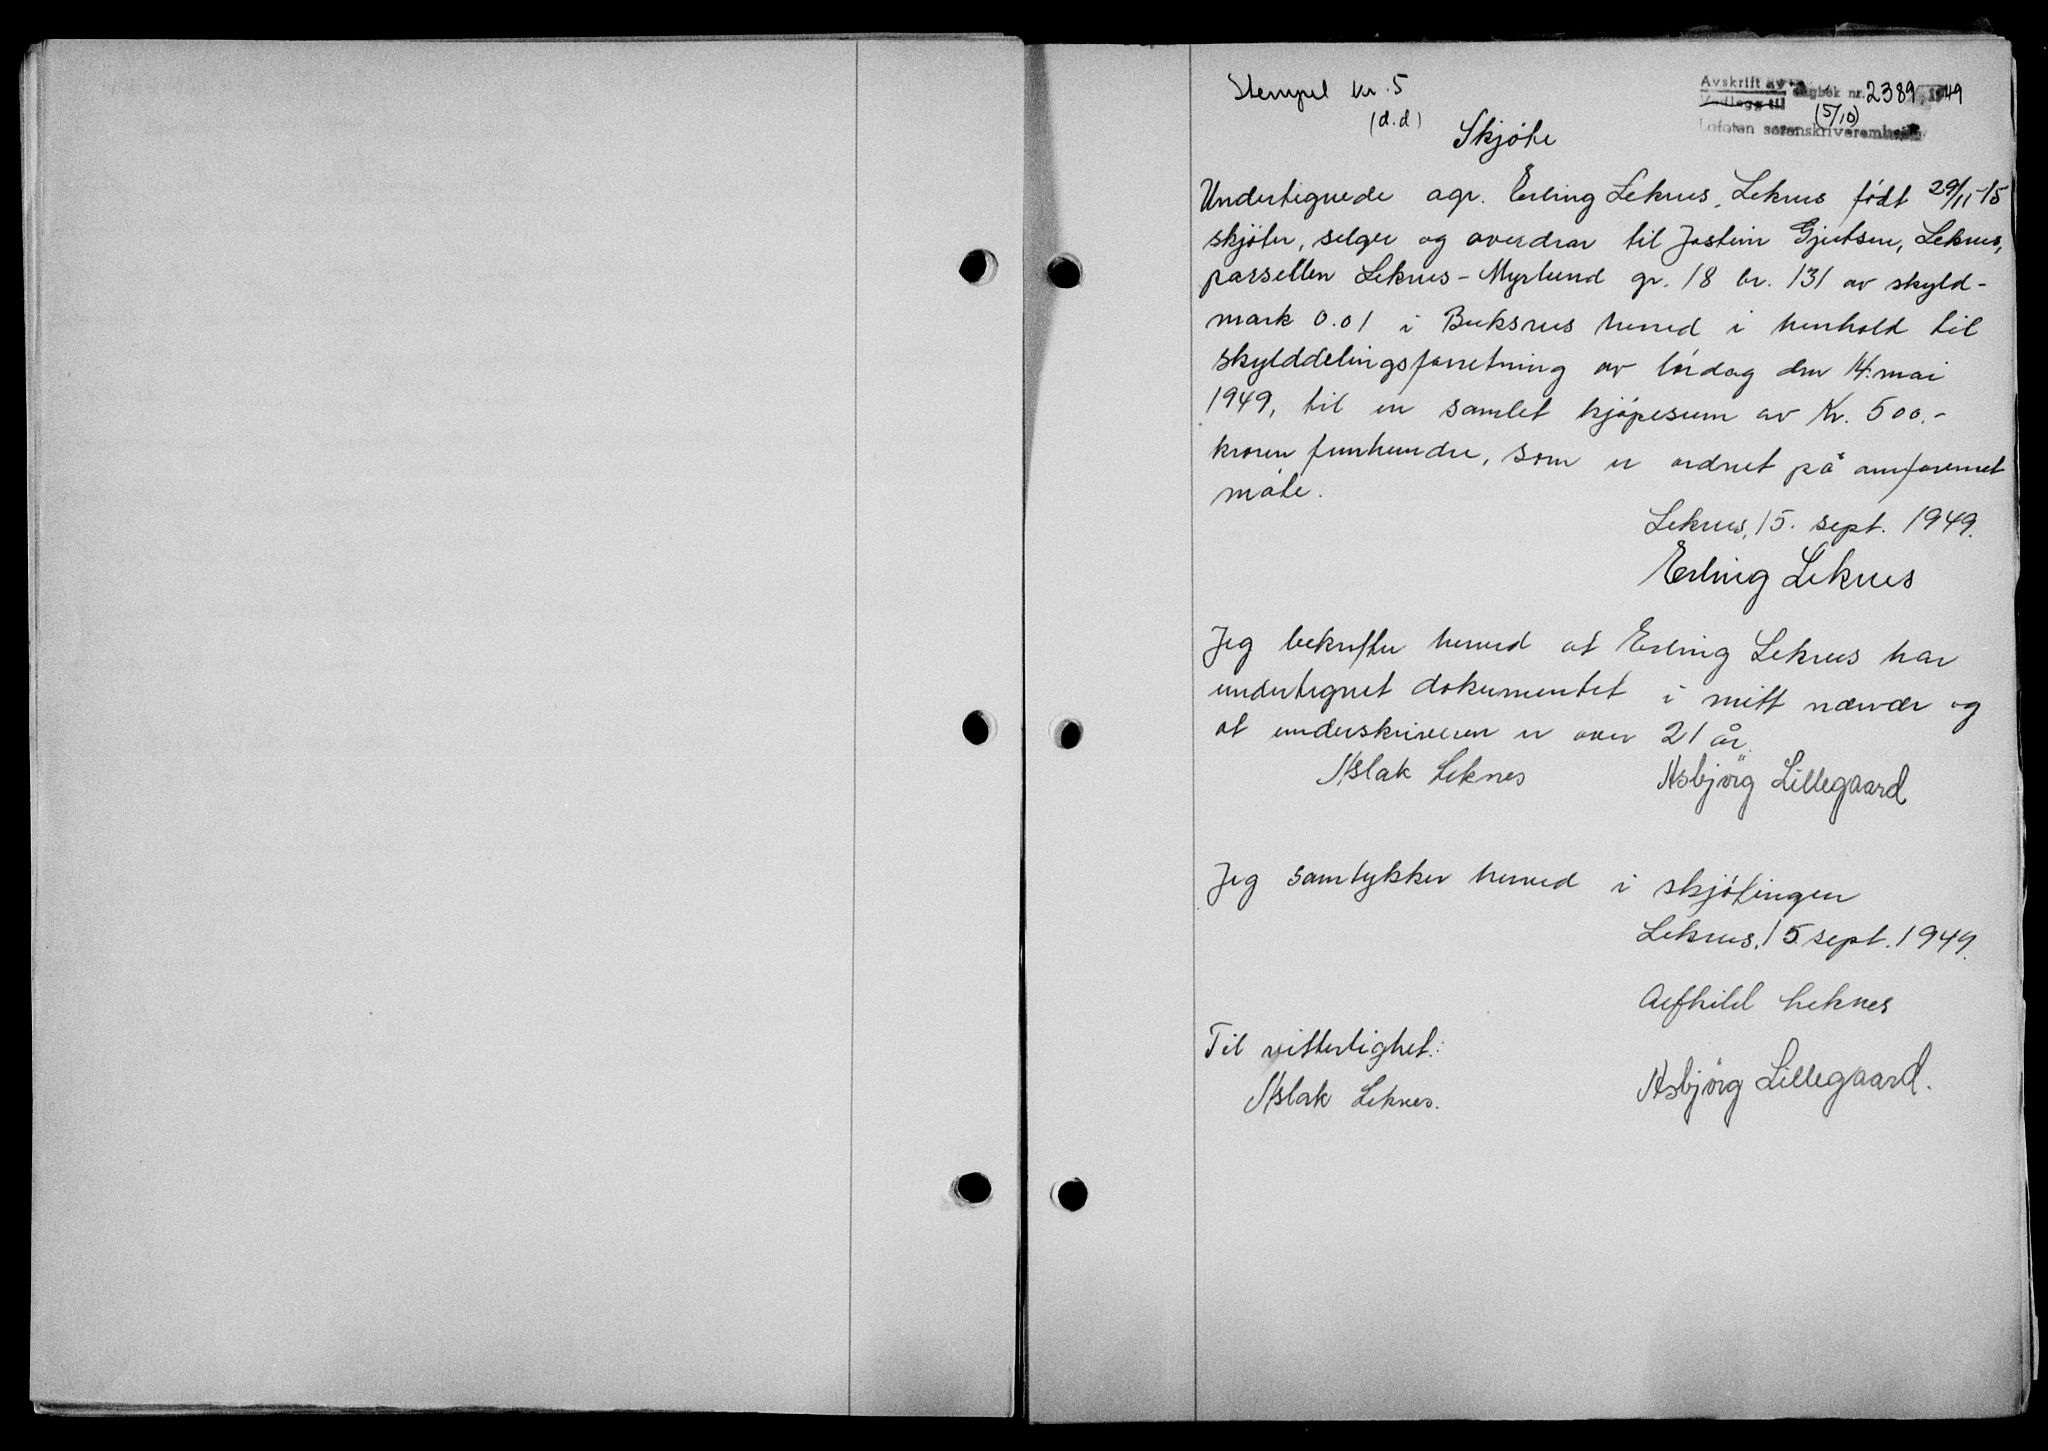 Stempel kr. 5
(d.d)
Avskrift av dagbok nr. 2389, 1949
Vedlegg til (5/10)
Lofoten sorenskriverembete
Skjøte
Undertegnede agr. Erling Leknes, Leknes født 29/11-15
skjøter, selger og overdrar til Jostein Gjertsen, Leknes,
parsellen Leknes-Myrlund gr. 18 br. 131 av skyld-
mark 0.01 i Buksnes herred i henhold til
skylddelingsforretning av lørdag den 14. mai
1949, til en samlet kjøpesum av Kr. 500.-
kroner femhundre, som er ordnet på omforenet
måte.
Leknes, 15. sept. 1949.
Erling Leknes
Jeg bekrefter herved at Erling Leknes har
undertegnet dokumentet i mitt nærvær og
at underskriveren er over 21 år.
Aslak Leknes Asbjörg Lillegaard
Jeg samtykker herved i skjøtingen
Leknes, 15 sept. 1949.
Alfhild Leknes
Til vitterlighet:
Aslak Leknes. Asbjörg Lillegaard.